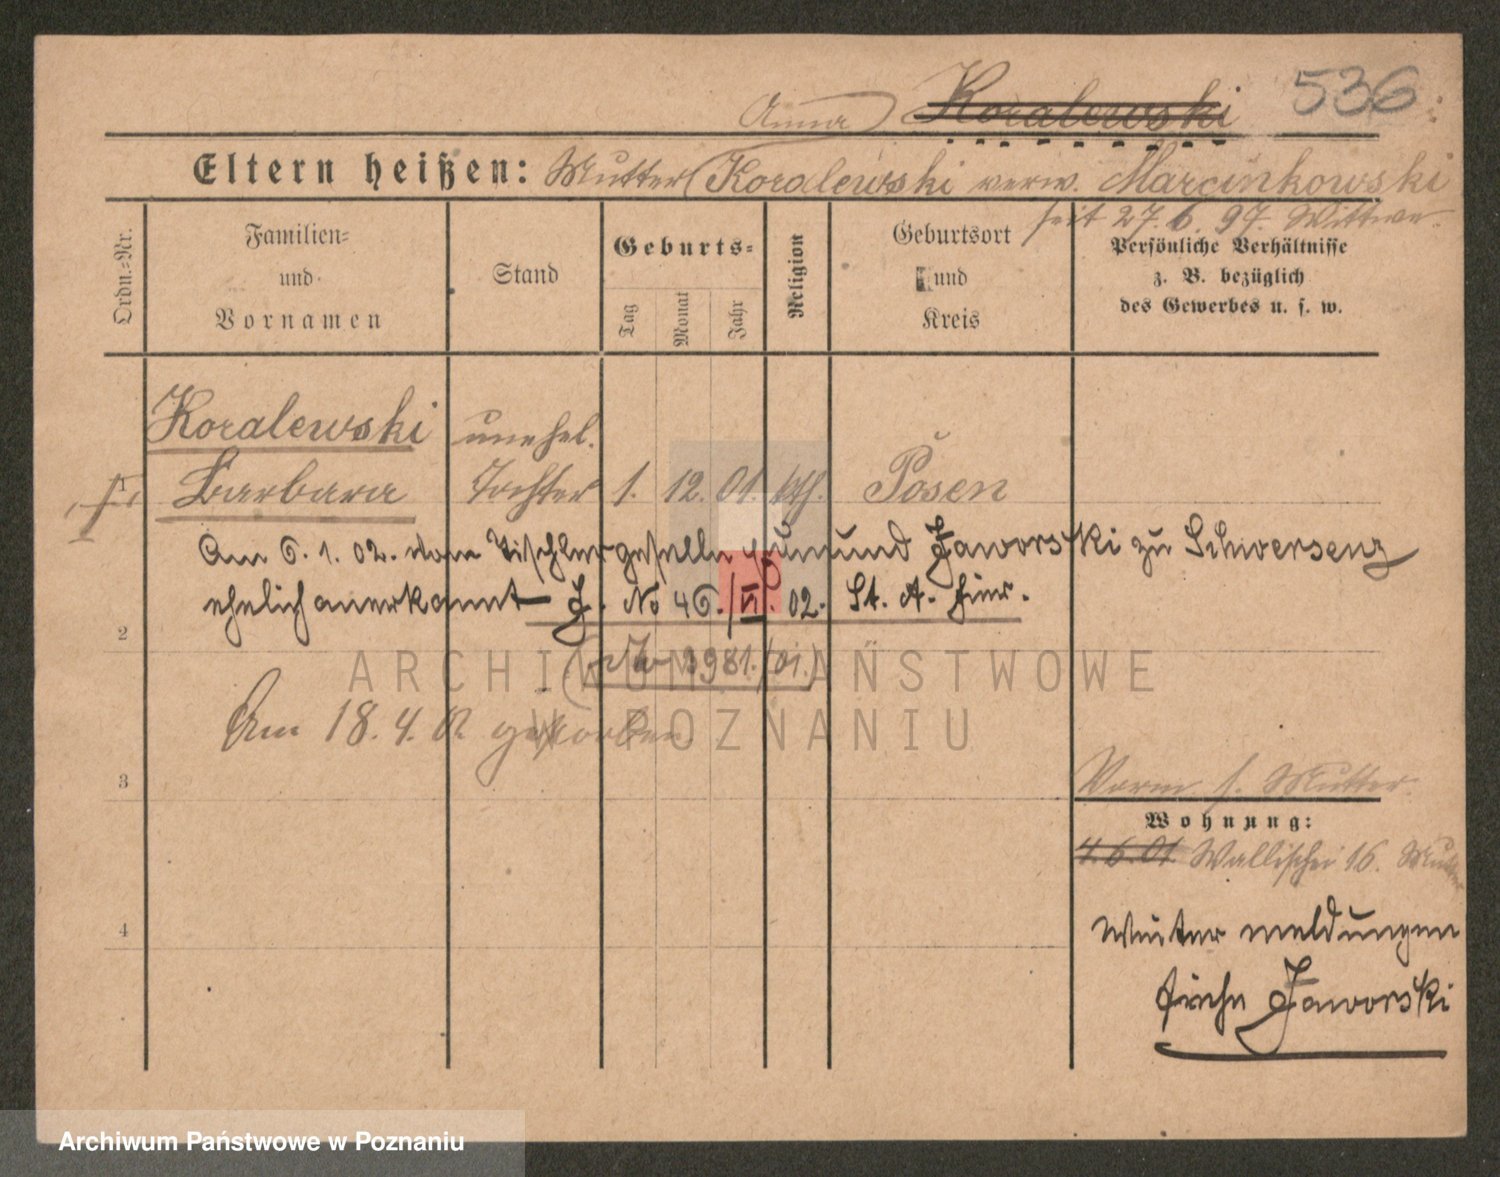 Anna Koralewski 536.
Eltern heißen: Mutter Koralewski verw. Marcinkowski
seit 27.6.97. Wittwe.
Ordn.-Nr.
Familien-
und
Vornamen
Stand
Geburts-
Tag
Monat
Jahr
Religion
Geburtsort
und
Kreis
Persönliche Verhältnisse
z. B. bezüglich
des Gewerbes u. s. w.
Koralewski unehel.
Barbara Tochter 1. 12. 01. kth. Posen
Am 6.1.02. vom Tischlergesellen Jaworski zu Schwersenz
ehelich anerkannt J. No 46./VI. 02. St. A. hier.
2
(No 3981./01.)
Am 18.4.02 gestorben.
3
Vorm. s. Mutter.
Wohnung:
4.6.01. Wallischei 16. Mutter
4
Weiter meldungen
siehe Jaworski
ARCHIWUM PAŃSTWOWE
W POZNANIU
Archiwum Państwowe w Poznaniu